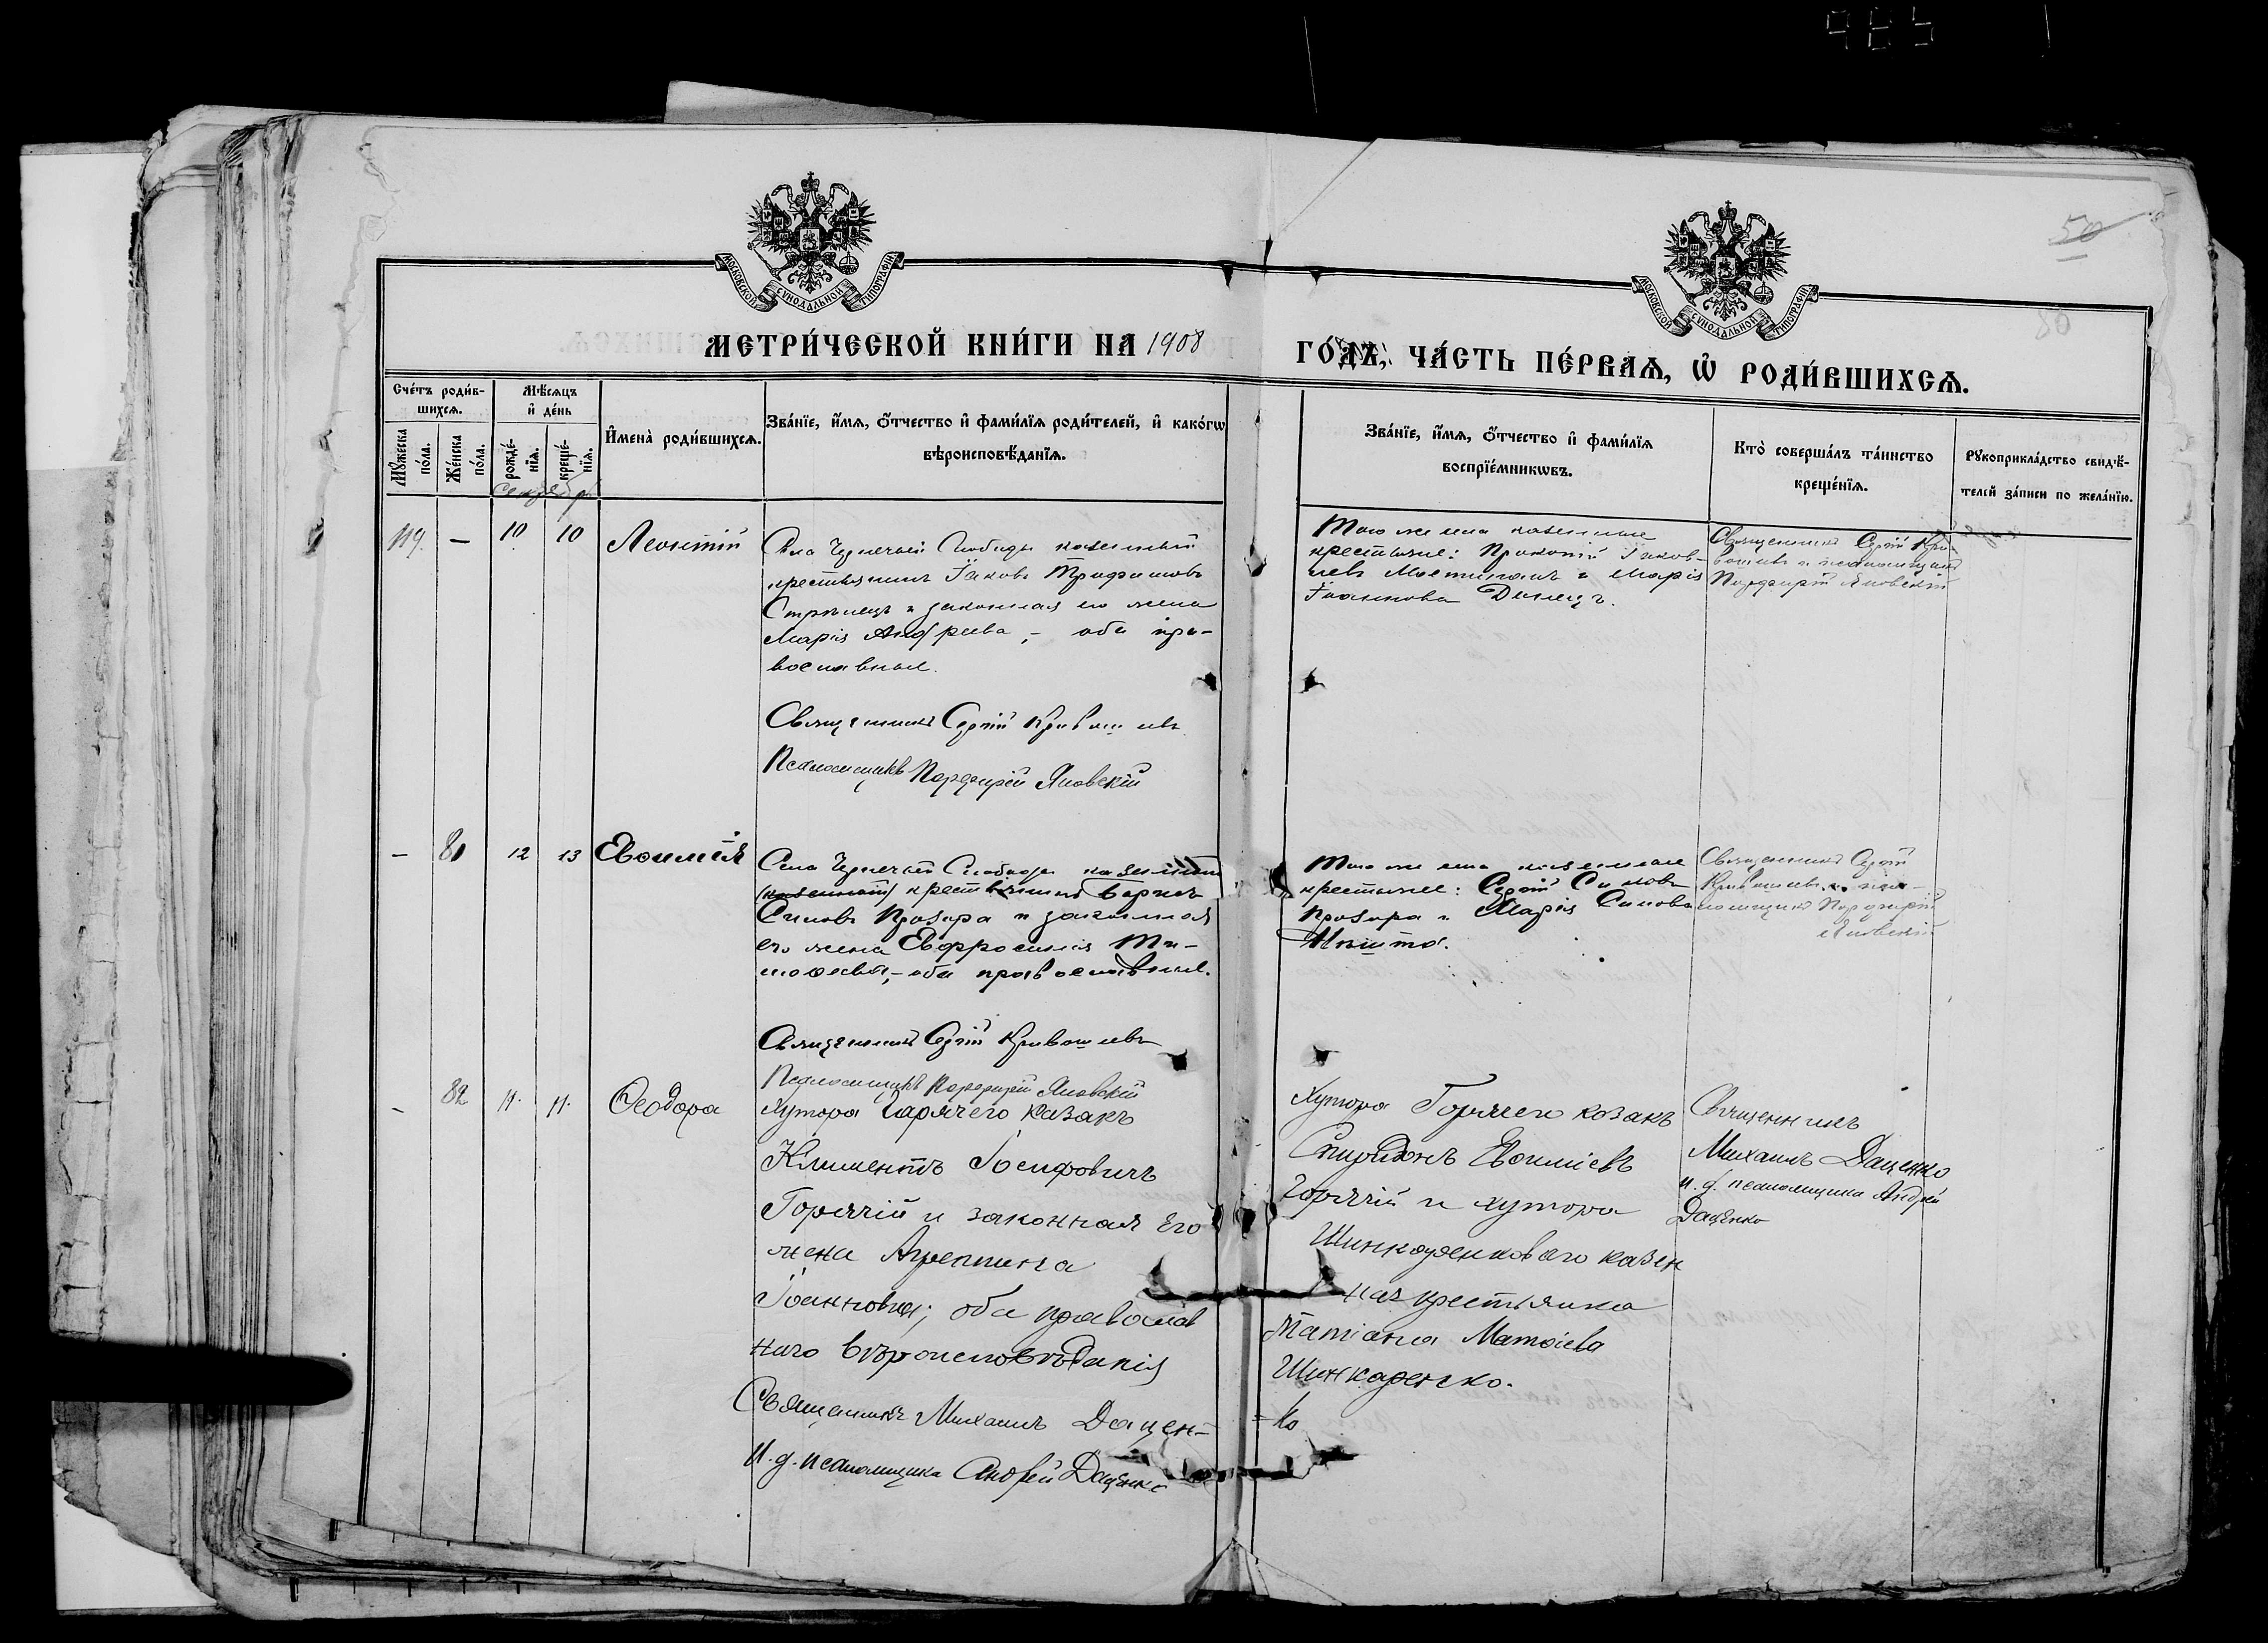 50
МОСКОВСКОЙ СУНОДАЛЬНОЙ ТИПОГРАФІИ
МОСКОВСКОЙ СУНОДАЛЬНОЙ ТИПОГРАФІИ
МЕТРИ́ЧЕСКОЙ КНИ́ГИ НА 1908
ГО́ДЪ, ЧА́СТЬ ПЕ́РВАѦ, Ѽ РОДИ́ВШИХСѦ.
Сче́тъ роди́в-
шихсѧ.
Мѣ́сѧцъ
и҆ де́нь
Мꙋ́жеска
по́ла.
Же́нска
по́ла.
рожде́-
нїѧ.
креще́-
нїѧ.
И҆мена̀ роди́вшихсѧ.
Зва́нїе, и҆́мѧ, ѻ҆́тчество и҆ фами́лїѧ роди́телей, и҆ како́гѡ
вѣроисповѣ́данїѧ.
Зва́нїе, и҆́мѧ, ѻ҆́тчество и҆ фами́лїѧ
воспрїе́мникѡвъ.
Кто̀ соверша́лъ та́инство
креще́нїѧ.
Рꙋкоприкла́дство свидѣ́-
телей за́писи по жела́нїю.
119. — 10 10 Леонтій
Села Чернечей Слободы казенный
крестьянинъ Іаковъ Трифоновъ
Стрѣлецъ и законная его жена
Марія Андреева, – оба пра-
вославные.
Священникъ Сергій
Псаломщикъ Порфирій Яновскій
Того же села казенные
крестьяне: Прокопій Іаков-
левъ и Марія
Іоаннова
Священникъ Сергій
и псаломщикъ
Порфирій Яновскій
– 81 12 13 Евѳимія
Села Чернечей Слободы казенный
(казенный) крестьянинъ
Симовъ Прозора и законная
его жена Евфросинія Ти-
моѳеева, – оба православные.
Священникъ Сергій
Псаломщикъ Порфирій Яновскій
Того же села казенные
крестьяне: Сергій Симовъ
Прозора и Марія Симова
Священникъ Сергій
и пса-
ломщикъ Порфирій
Яновскій
– 82 11. 11. Ѳеодора
Хутора Горячего казакъ
Климентъ Іосифовичъ
Горячій и законная его
жена Агреппина
Іоаннова; оба православ
наго вѣроисповѣданія
Священникъ Михаилъ Дацен-
=ко
И. д. псаломщика Андрей Даценко
Хутора Горячего козакъ
Спиридонъ Евѳиміевъ
Горячій и хутора
казен
ная крестьянка
Татіана Матѳіева
Шинкаренко.
Священникъ
Михаилъ Даценко
и. д. псаломщика Андрей
Даценко